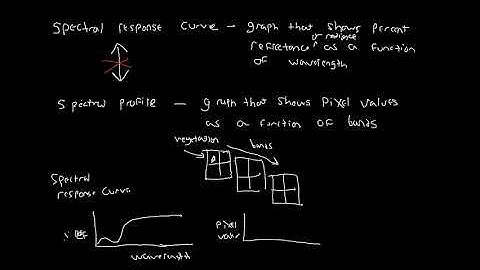 Spectral response curve – graph that shows percent
or radiance
reflectance as a function
of wavelength
Spectral profile – graph that shows pixel values
as a function of bands
vegetation
bands
Spectral
response curve
wavelength
pixel
value